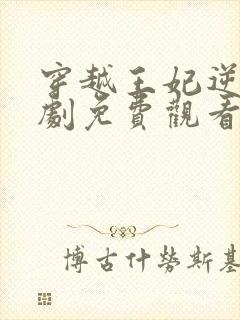 穿越王妃逆
劇免費觀看
博古什勞斯基